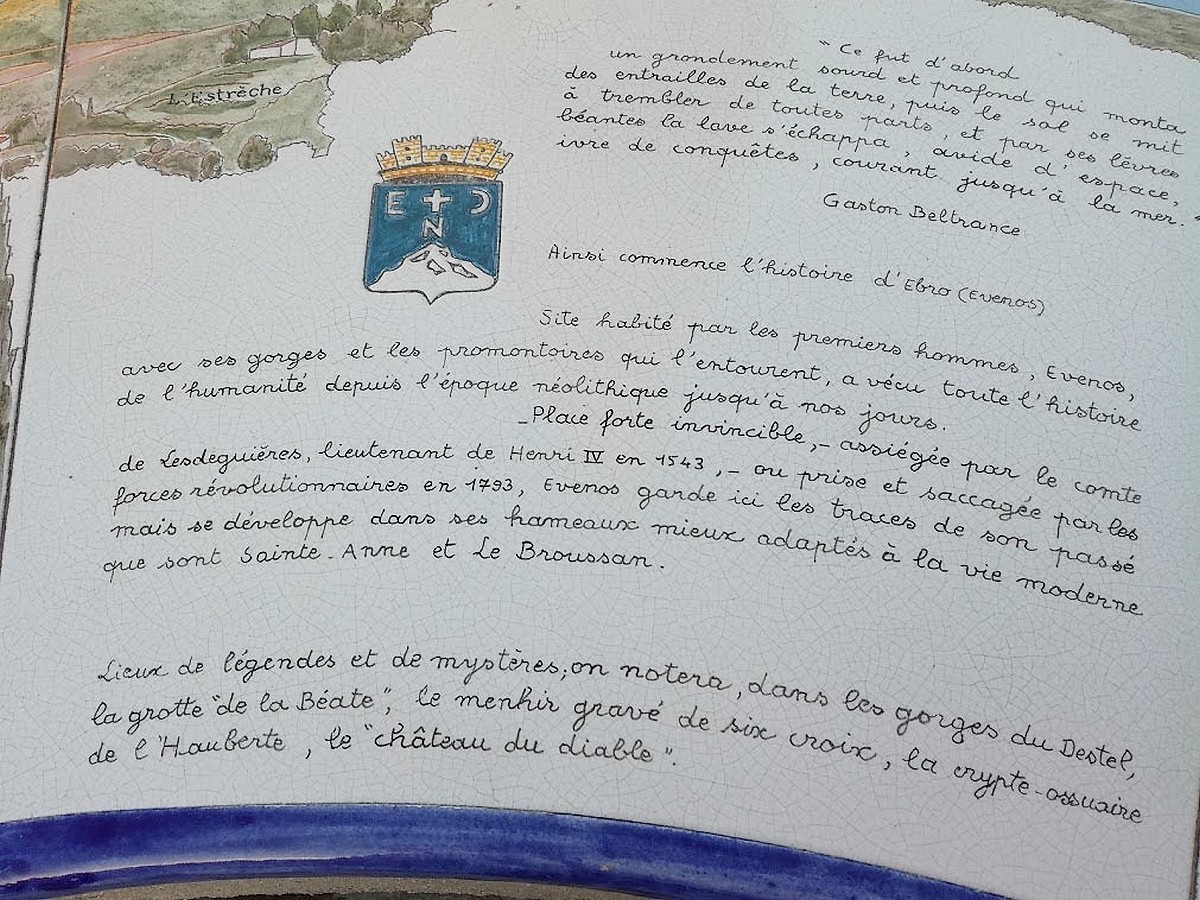 L'Estrèche
E + Ɔ
N
" Ce fut d'abord
un grondement sourd et profond qui monta
des entrailles de la terre, puis le sol se mit
à trembler de toutes parts, et par ses lèvres
béantes la lave s'échappa, avide d'espace,
ivre de conquêtes, courant jusqu'à la mer. "
Gaston Beltrance
Ainsi commence l'histoire d'Ebro (Evenos)
Site habité par les premiers hommes, Evenos,
avec ses gorges et les promontoires qui l'entourent, a vécu toute l'histoire
de l'humanité depuis l'époque néolithique jusqu'à nos jours.
_Place forte invincible,_ assiégée par le comte
de Lesdeguières, lieutenant de Henri IV en 1543,_ ou prise et saccagée par les
forces révolutionnaires en 1793, Evenos garde ici les traces de son passé
mais se développe dans ses hameaux mieux adaptés à la vie moderne
que sont Sainte-Anne et Le Broussan.
Lieux de légendes et de mystères; on notera, dans les gorges du Destel,
la grotte "de la Béate", le menhir gravé de six croix, la crypte-ossuaire
de l'Hauberte, le "château du diable".